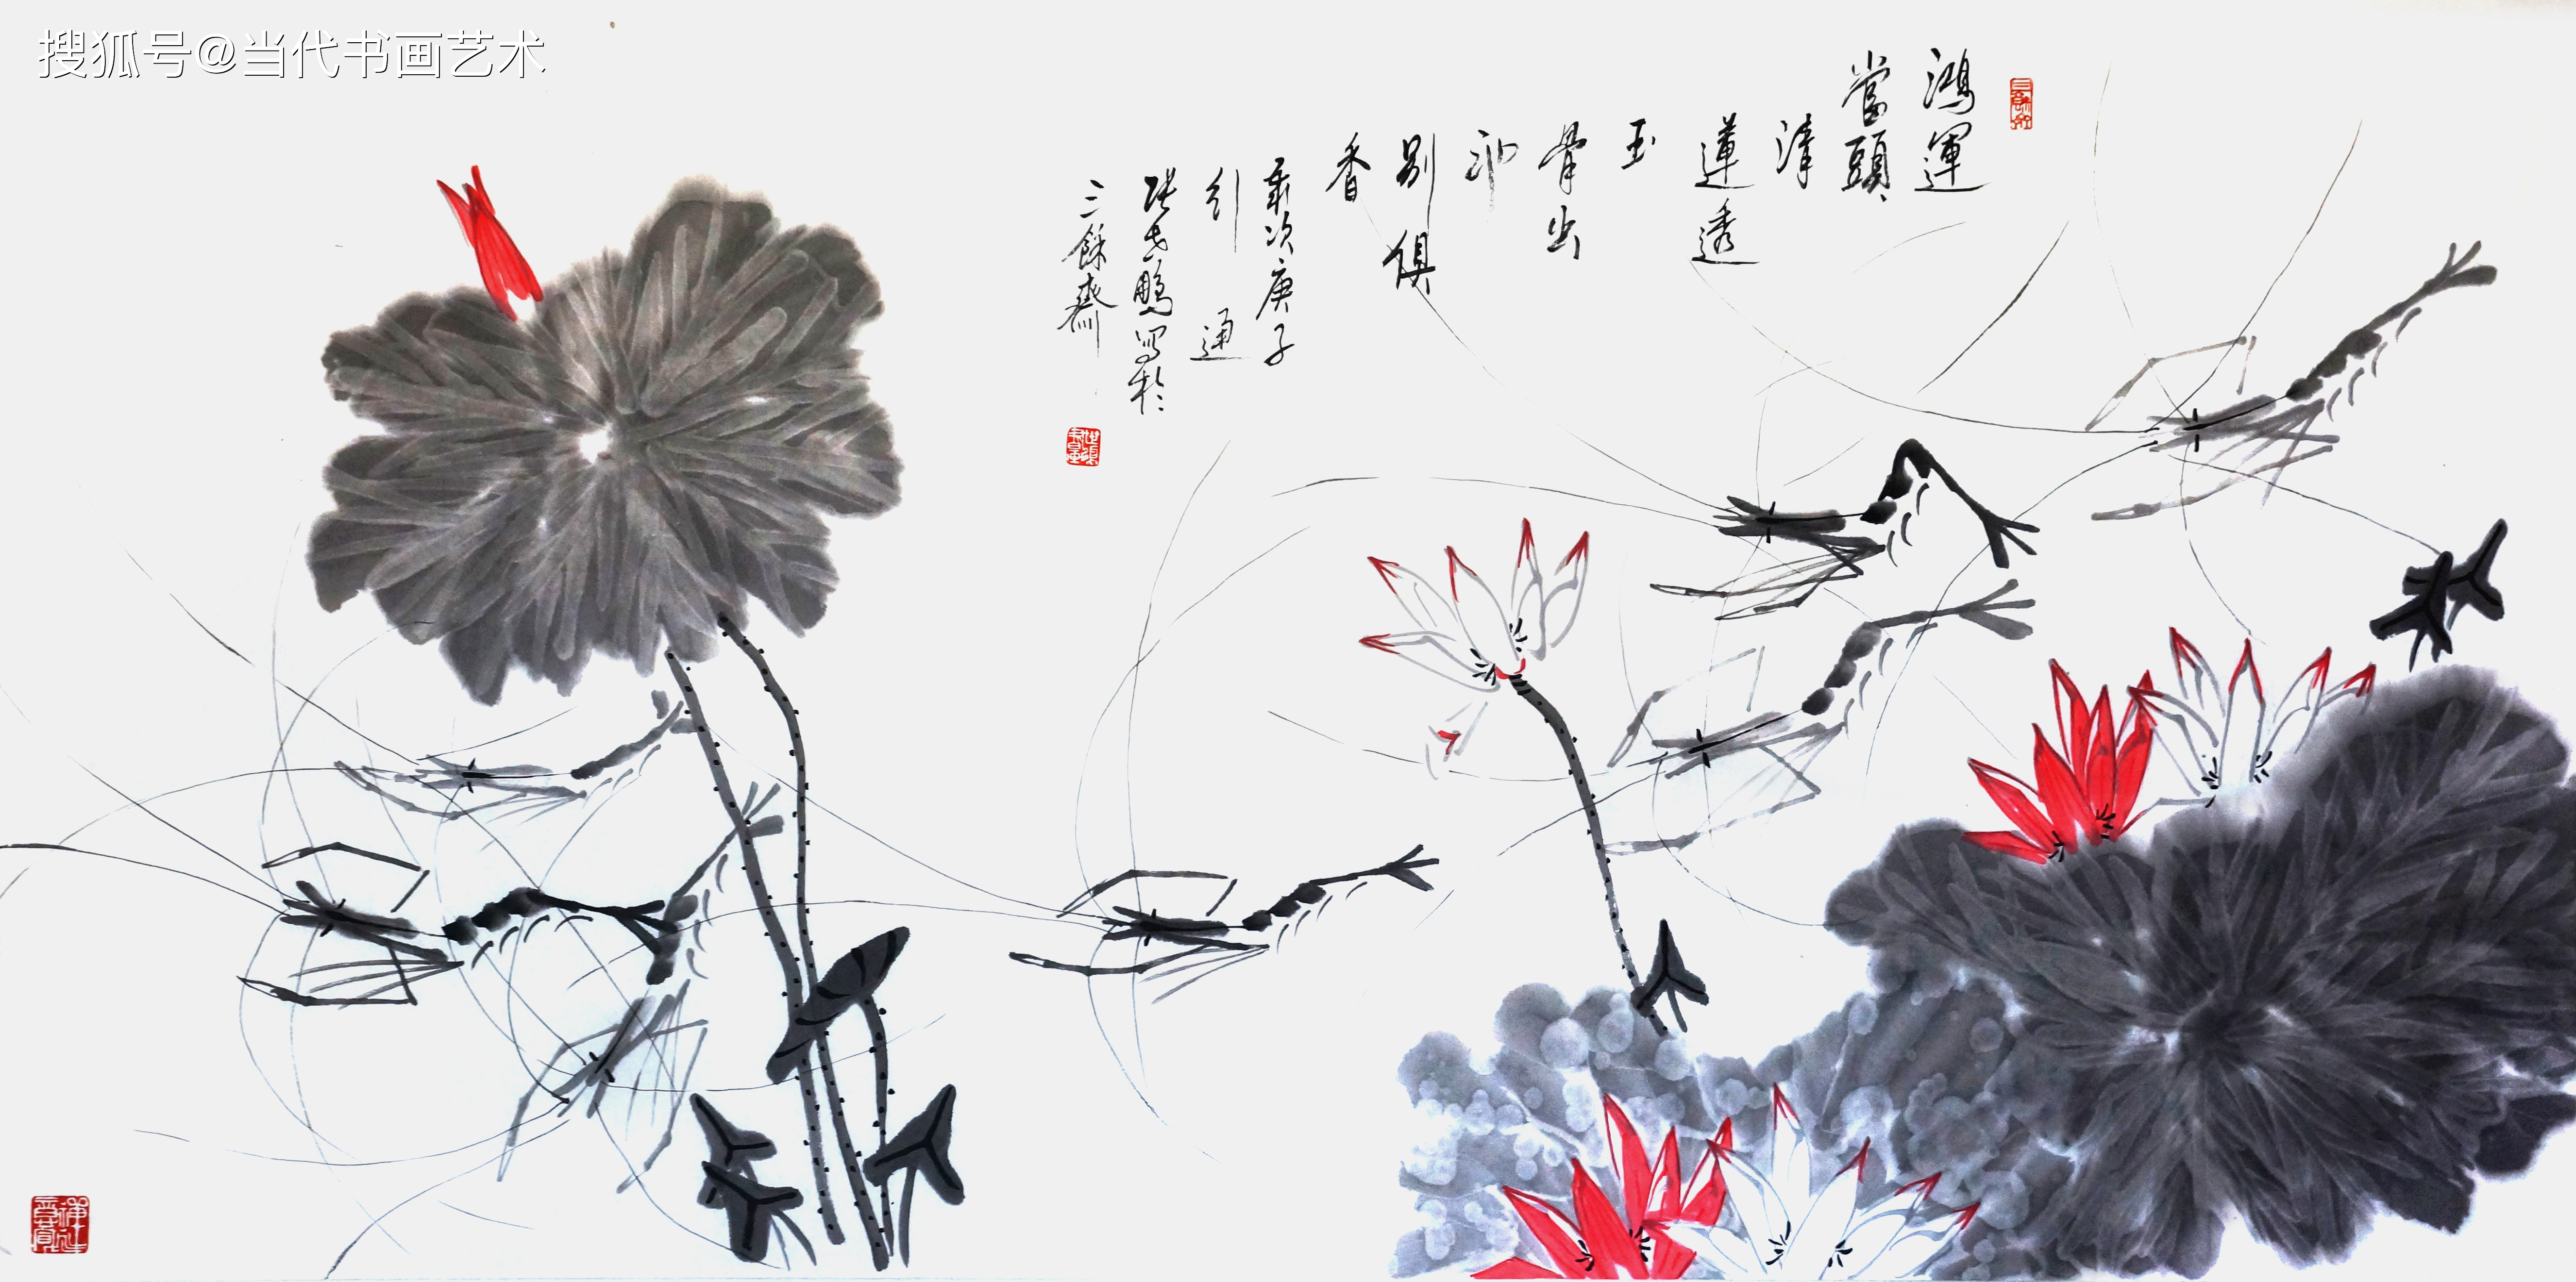 搜狐号@当代书画艺术
鴻運
當頭
清
蓮透
玉
骨出
泥
別俱
香
歲次庚子
引通
張鵬寫於
三餘齋